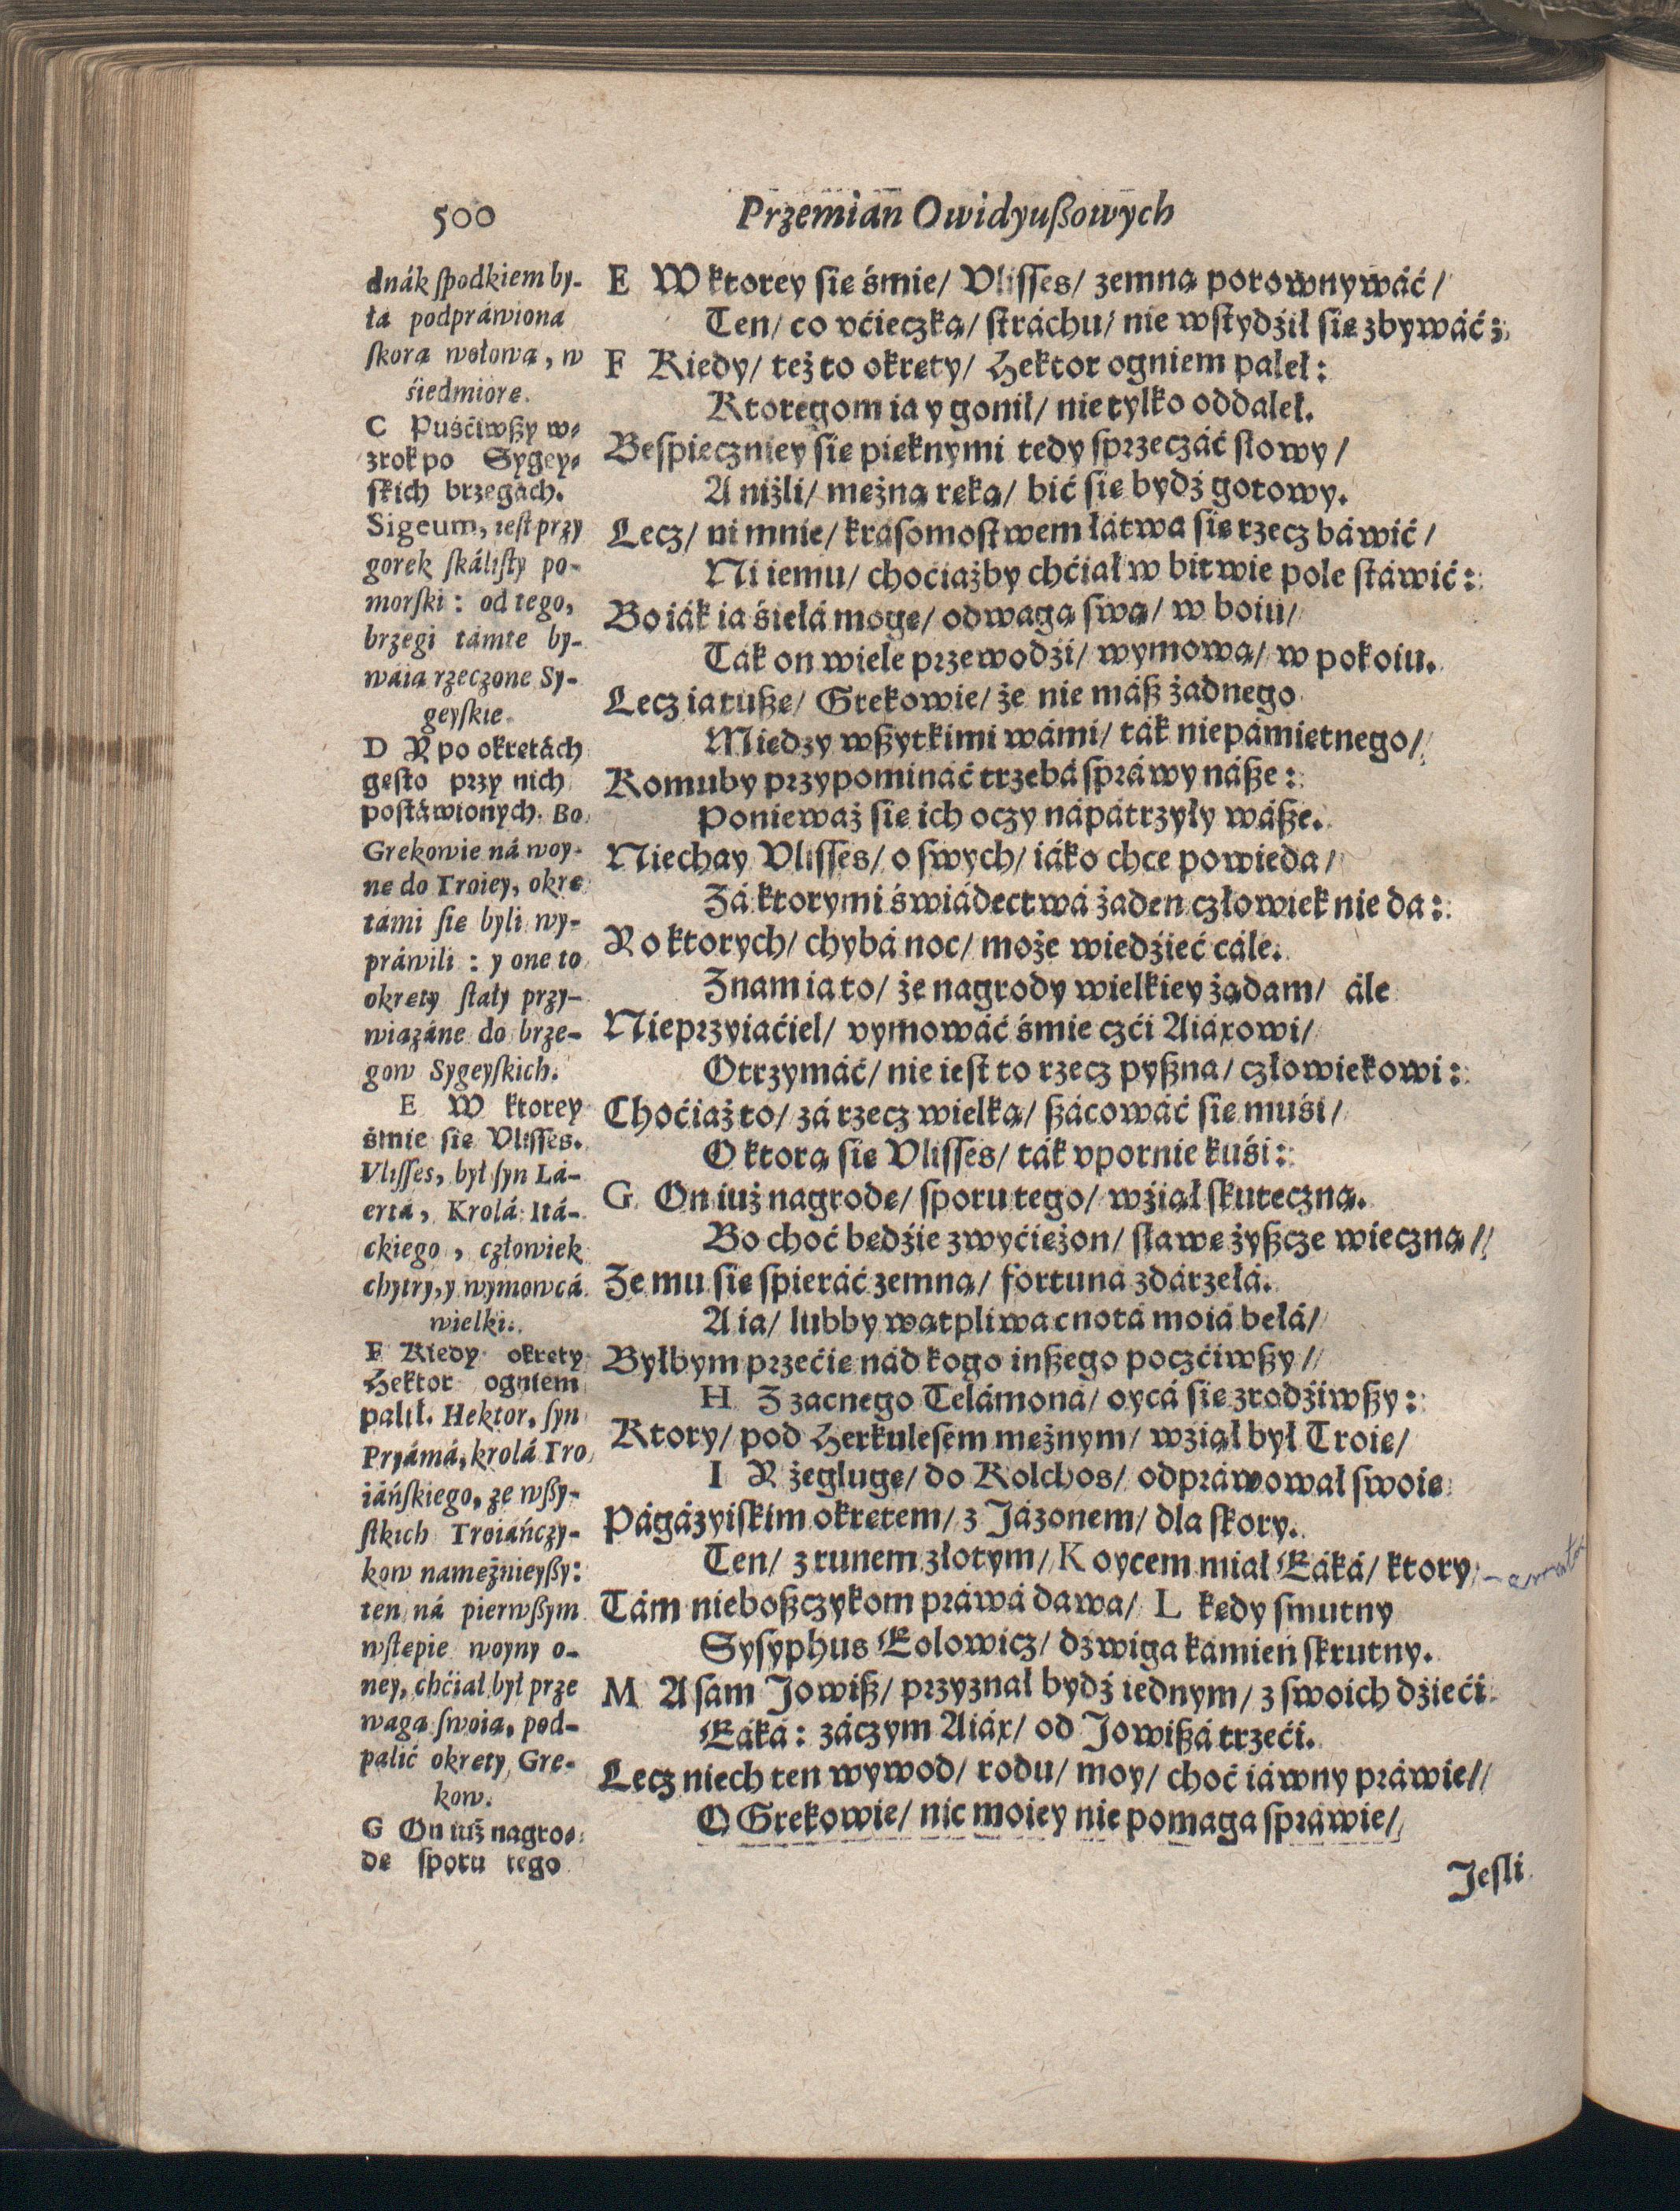 500
Przemian Owidyußowych
dnák spodkiem by-
ła podpráwiona
skora wołowa, w
śiedmiore.
C Puśćiwßy w-
zrok po Sygey-
skich brzegách.
Sigeum, iest przy
gorek skálisty po-
morski: od tego,
brzegi támte by-
waia rzeczone Sy-
geyskie.
D Y po okretách
gesto przy nich
postáwionych. Bo
Grekowie ná woy-
ne do Troiey, okre
támi sie byli wy-
práwili: y one to
okrety stały przy-
wiązáne do brze-
gow Sygeyskich.
E W ktorey
śmie sie Vlisses.
Vlisses, był syn Lá-
ertá, Krolá Itá-
ckiego, człowiek
chytry, y wymowcá
wielki.
F Kiedy okrety
Hektor ogniem
palił. Hektor, syn
Pryámá, krolá Tro
iáńskiego, ze wßy-
stkich Troiáńczy-
kow namężnieyßy:
ten ná pierwßym
wstepie woyny o-
ney, chćiał był prze
waga swoia, pod-
palić okrety Gre-
kow.
G On iuż nagro-
de sporu tego
E W ktorey sie śmie/ Vlisses/ zemną porownywáć/
Ten/ co vćieczką/ stráchu/ nie wstydźił sie zbywáć:
F Kiedy/ też to okrety/ Hektor ogniem paleł:
Ktoregom ia y gonił/ nie tylko oddaleł.
Bespieczniey sie pieknymi tedy sprzeczáć słowy/
A niżli/ meżną reką/ bić sie bydź gotowy.
Lecz/ ni mnie/ krasomostwem łátwa sie rzecz báwić/
Ni iemu/ choćiażby chćiał w bitwie pole stáwić:
Bo iák ia śiełá moge/ odwagą swą/ w boiu/
Ták on wiele przewodźi/ wymową/ w pokoiu.
Lecz ia tuße/ Grekowie/ że nie máß żadnego
Miedzy wßytkimi wámi/ ták niepámietnego/
Komuby przypomináć trzebá spráwy náße:
Ponieważ sie ich oczy nápátrzyły wáße.
Niechay Vlisses/ o swych/ iáko chce powieda/
Zá ktorymi świádectwá żaden człowiek nie da:
Y o ktorych/ chybá noc/ może wiedźieć cále.
Znam ia to/ że nagrody wielkiey żądam/ ále
Nieprzyiaćiel/ vymowáć śmie czći Aiáxowi/
Otrzymáć/ nie iest to rzecz pyßna/ człowiekowi:
Choćiaż to/ zá rzecz wielką/ ßácowáć sie muśi/
O ktorą sie Vlisses/ ták vpornie kuśi:
G On iuż nagrode/ sporu tego/ wźiął skuteczną.
Bo choć bedźie zwyćieżon/ sławe żyßcze wieczną/
Ze mu sie spieráć zemną/ fortuná zdárzełá.
A ia/ lubby wątpliwa cnotá moiá bełá/
Byłbym przećie nád kogo inßego poczćiwßy/
H Z zacnego Telámoná/ oycá sie zrodźiwßy:
Ktory/ pod Herkulesem meżnym/ wźiął był Troie/
I Y żegluge/ do Kolchos/ odpráwował swoie
Págázyiskim okretem/ z Jázonem/ dla skory.
Ten/ z runem złotym/ K oycem miał Eáká/ ktory
Tám nieboßczykom práwá dawa/ L kędy smutny
Sysyphus Eolowicz/ dźwiga kámień skrutny.
M A sam Jowiß/ przyznał bydź iednym/ z swoich dźieći
Eáká: záczym Aiáx/ od Jowißá trzeći.
Lecz niech ten wywod/ rodu/ moy/ choć iáwny práwie/
O Grekowie/ nic moiey nie pomaga spráwie/
Jesli